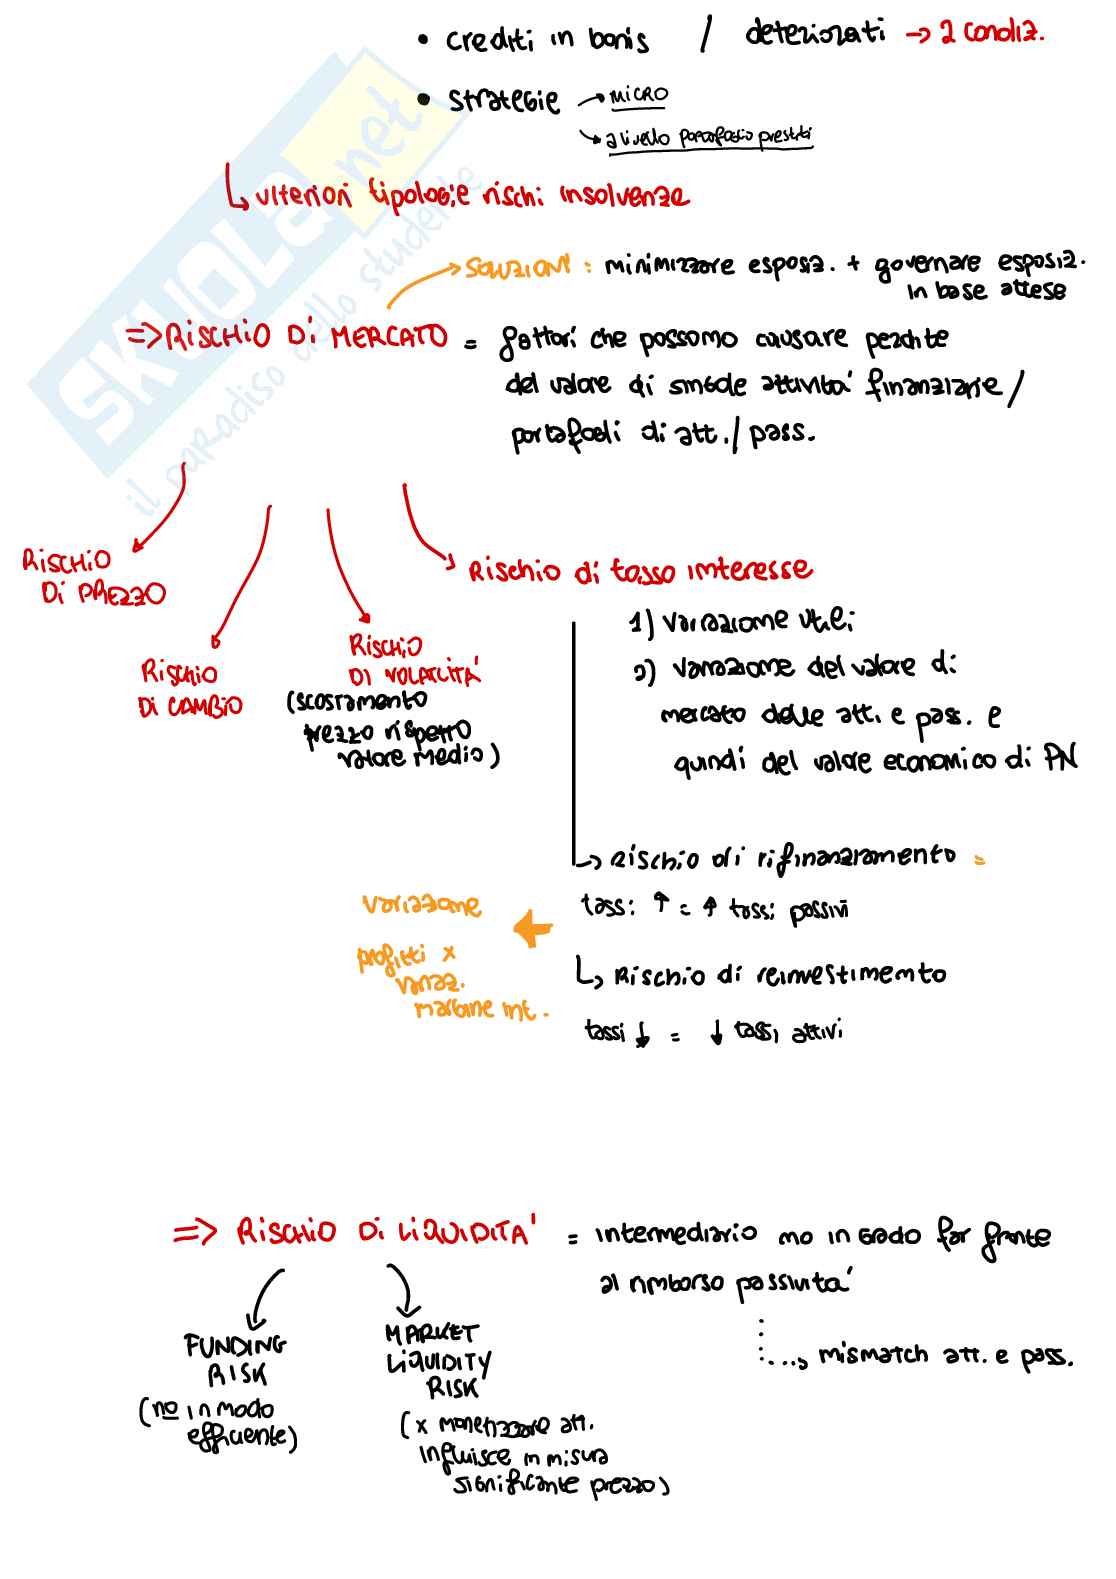 • crediti in bonis / deteriorati → 2 condiz.
• strategie → micro
→ a livello portafoglio prestiti
↳ ulteriori tipologie rischi insolvenze
→ soluzioni : minimizzare esposiz. + governare esposiz.
in base attese
⇒ RISCHIO DI MERCATO = fattori che possono causare perdite
del valore di singole attività finanziarie /
portafogli di att. / pass.
RISCHIO
DI PREZZO
RISCHIO
DI CAMBIO
RISCHIO
DI VOLATILITÀ
(scostamento
prezzo rispetto
valore medio)
Rischio di tasso interesse
1) variazione utili
2) variazione del valore di
mercato delle att. e pass. e
quindi del valore economico di PN
↳ rischio di rifinanziamento =
tassi ↑ = ↑ tassi passivi
variazione
profitti x
variaz.
margine int.
↳ Rischio di reinvestimento
tassi ↓ = ↓ tassi attivi
⇒ RISCHIO DI LIQUIDITÀ = intermediario no in grado far fronte
al rimborso passività
....→ mismatch att. e pass.
FUNDING
RISK
(no in modo
efficiente)
MARKET
LIQUIDITY
RISK
(x monetizzare att.
influisce in misura
significante prezzo)
SKUOLA.net
il paradiso dello studente